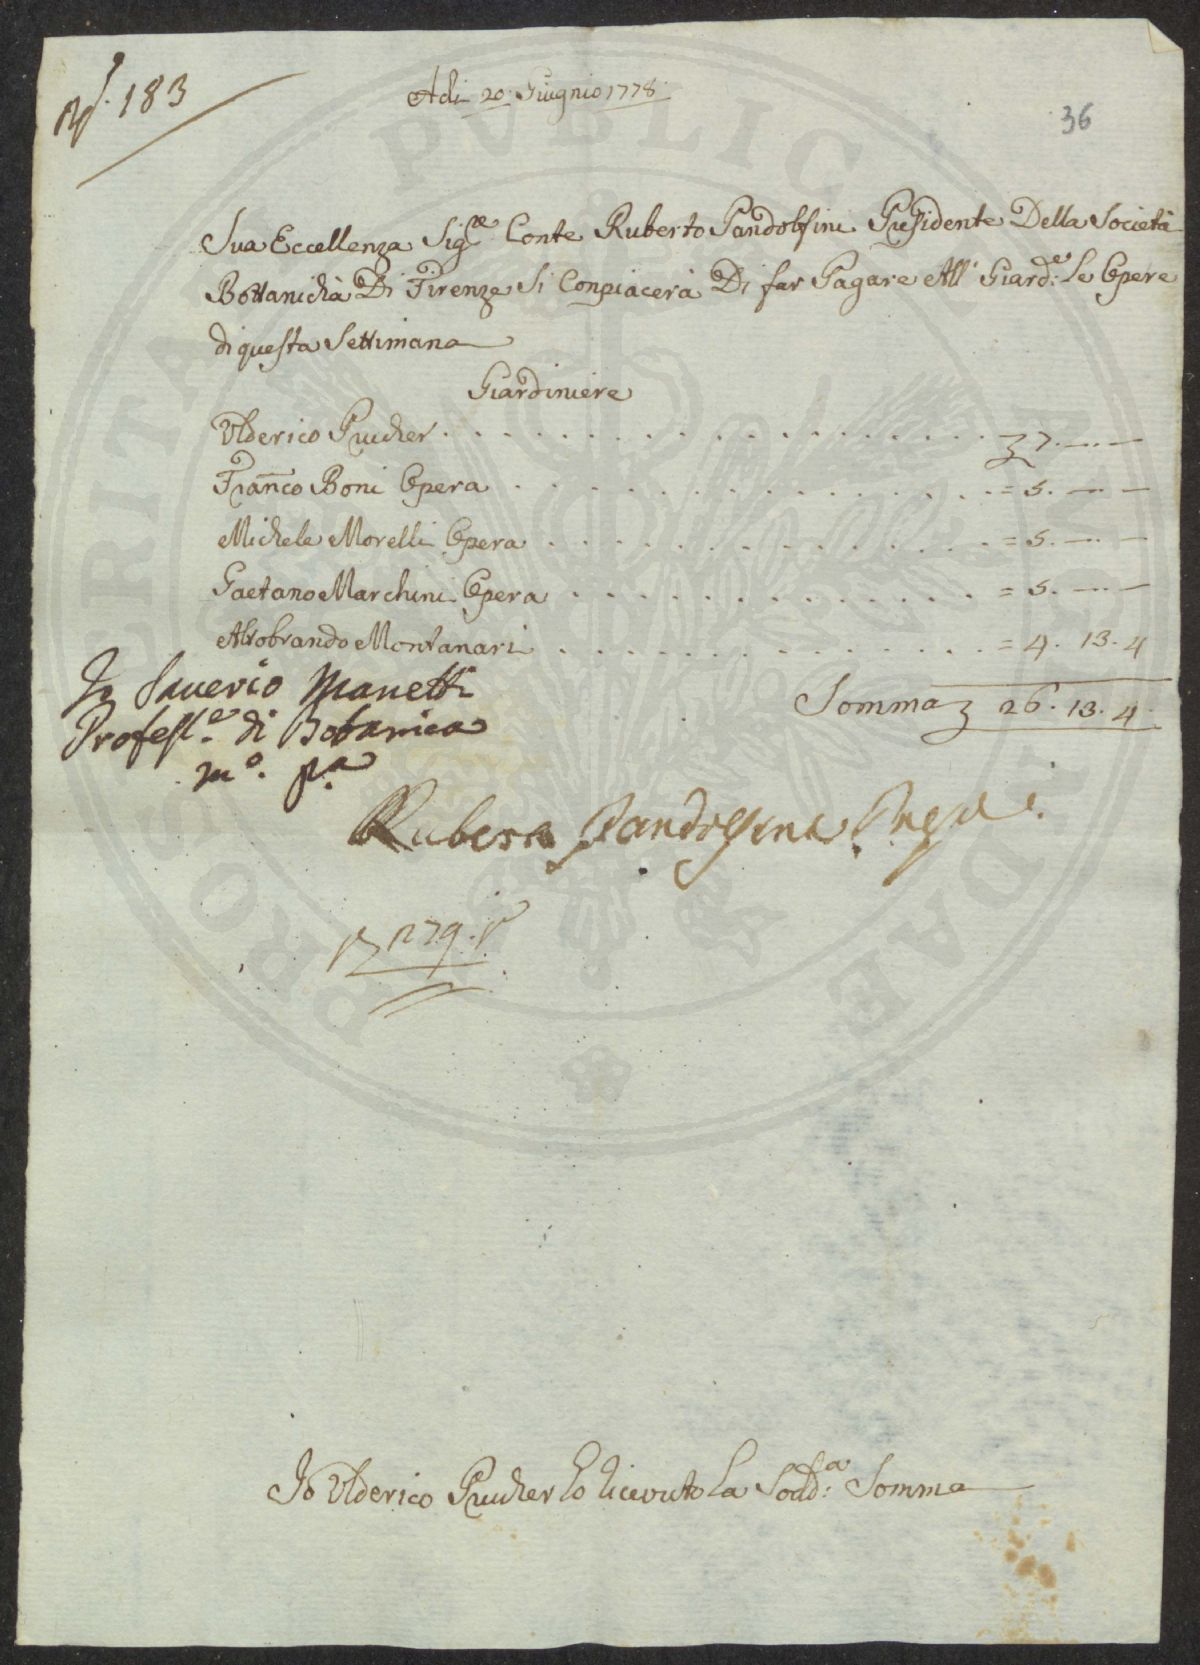 183
Adi 20: Giugnio 1778
36
Sua Eccellenza Sig.re Conte Ruberto Pandolfini Presidente Della Società
Bottanicha Di Firenze Si Conpiacerà Di far Pagare All' Giard:e Le Opere
di questa Settimana
Giardiniere
Ulderico Prucher . . . . . . . . 7. — —
Fran.co Boni Opera . . . . . . . . = 5. — —
Michele Morelli Opera . . . . . . . . = 5. — —
Gaetano Marchini Opera . . . . . . . . = 5. — —
Altobrando Montanari . . . . . . . . = 4. 13. 4
Somma 26. 13. 4
Io Saverio Manetti
Profess.e di Botanica
m.o p.a
Ruberto Pandolfini Presid.e
1279
Io Ulderico Prucher ho ricevuto La Sodd:a Somma
PRO SORITATE PUBLICA